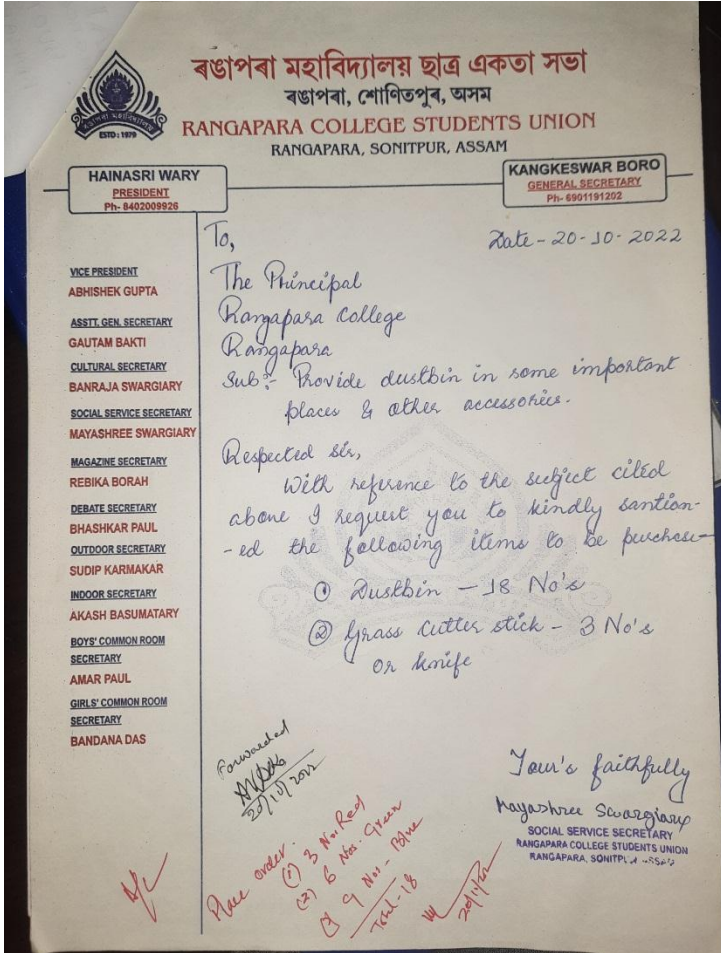 ৰঙাপৰা মহাবিদ্যালয় ছাত্ৰ একতা সভা
ৰঙাপৰা, শোণিতপুৰ, অসম
RANGAPARA COLLEGE STUDENTS UNION
RANGAPARA, SONITPUR, ASSAM
ৰঙাপৰা মহাবিদ্যালয়
ESTD: 1979
HAINASRI WARY
PRESIDENT
Ph- 8402009926
KANGKESWAR BORO
GENERAL SECRETARY
Ph- 6901191202
VICE PRESIDENT
ABHISHEK GUPTA
ASSTT. GEN. SECRETARY
GAUTAM BAKTI
CULTURAL SECRETARY
BANRAJA SWARGIARY
SOCIAL SERVICE SECRETARY
MAYASHREE SWARGIARY
MAGAZINE SECRETARY
REBIKA BORAH
DEBATE SECRETARY
BHASHKAR PAUL
OUTDOOR SECRETARY
SUDIP KARMAKAR
INDOOR SECRETARY
AKASH BASUMATARY
BOYS' COMMON ROOM
SECRETARY
AMAR PAUL
GIRLS' COMMON ROOM
SECRETARY
BANDANA DAS
To,
Date - 20-10-2022
The Principal
Rangapara College
Rangapara
Sub:- Provide dustbin in some important
places & other accessories.
Respected sir,
With reference to the subject cited
above I request you to kindly santion-
-ed the following items to be purchese-
① Dustbin - 18 No's
② Grass Cutter stick - 3 No's
or knife
Your's faithfully
Mayashree Swargiary
SOCIAL SERVICE SECRETARY
RANGAPARA COLLEGE STUDENTS UNION
RANGAPARA, SONITPUR ASSAM
Forwarded
20/10/2022
Place order.
(1) 3 No. Red
(2) 6 Nos. Green
9 Nos - Blue
Total - 18